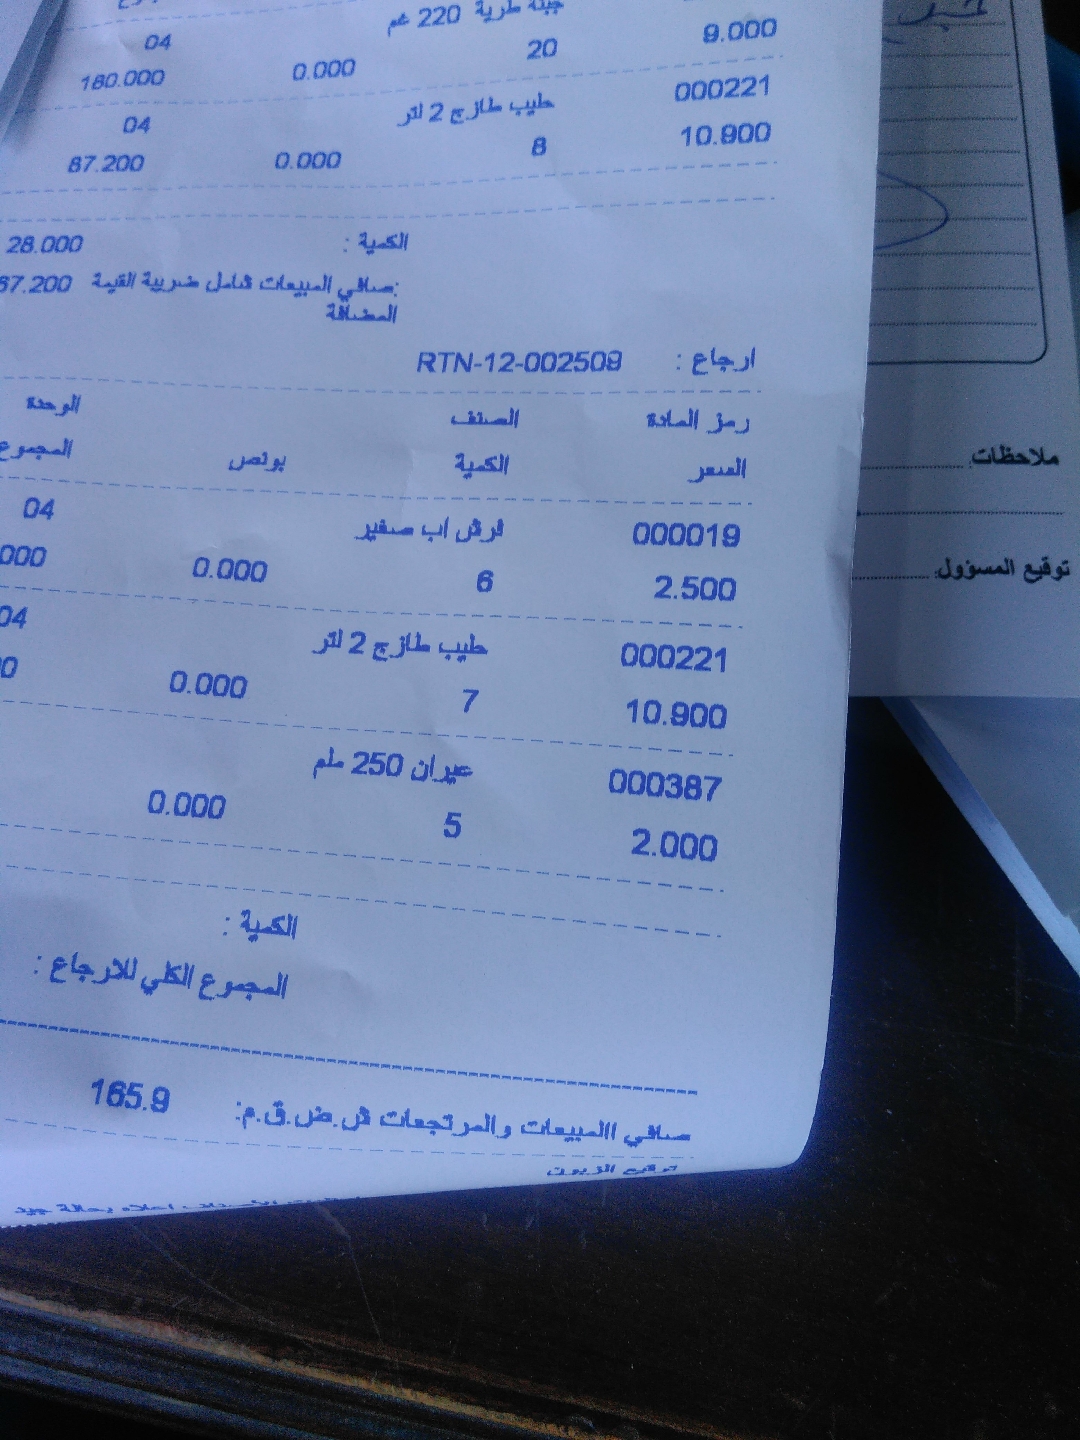 جبنة طرية 220 غم
9.000 20 0.000 04 180.000
000221 حليب طازج 2 لتر 04
10.900 8 0.000 87.200
الكمية : 28.000
صافي المبيعات شامل ضريبة القيمة المضافة: 67.200
ارجاع : RTN-12-002509
رمز المادة الصنف الوحدة
السعر الكمية بونص المجموع
000019 04
2.500 6 0.000 000
000221 حليب طازج 2 لتر 04
10.900 7 0.000
000387 عيران 250 ملم
2.000 5 0.000
الكمية :
المجموع الكلي للارجاع :
صافي االمبيعات والمرتجعات ش.ض.ق.م: 165.9
توقيع الزبون
ملاحظات:
توقيع المسؤول: